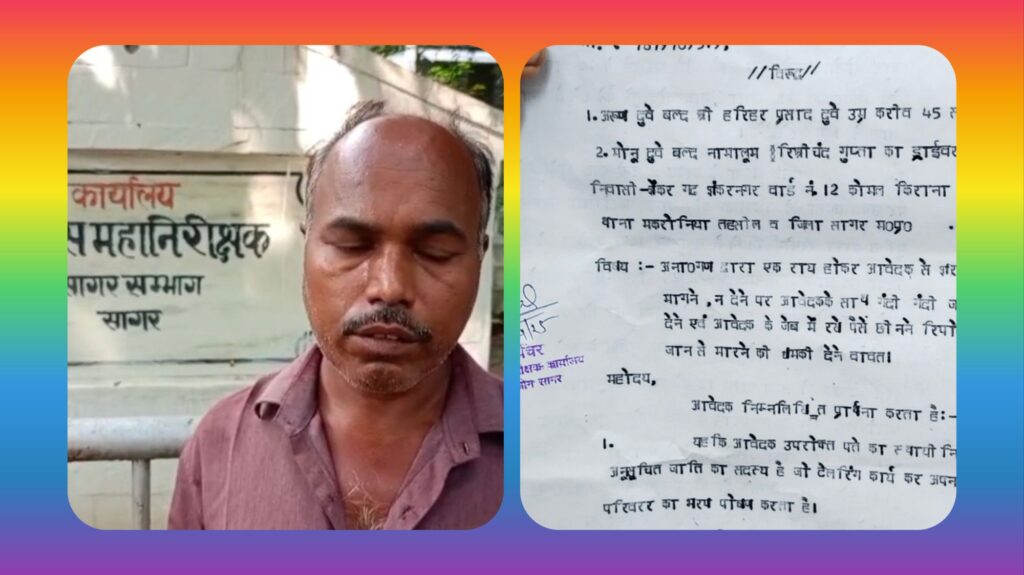 कार्यालय
महानिरीक्षक
सागर सम्भाग
सागर
//विरुद्ध//
1. अरूण दुवे बल्द श्री हरिहर प्रसाद दुवे उम्र करीव 45
2. मोनू दुवे बल्द नामालूम हरिश्रीचंद गुप्ता का ड्राईवर
निवासी-बैंकर गट शंकरनगर वार्ड नं. 12 कोमल किराना
थाना मकरोनिया तहसील व जिला सागर म0प्र0
विषय :- अना0गण द्वारा एक राय होकर आवेदक से
मागने , न देने पर आवेदकके साथ गंदी गंदी
देने एवं आवेदक के जेब में रखे पैसे छीनने
जान से मारने की धमकी देने वावत।
कार्यालय
सागर
महोदय,
आवेदक निम्नलिखित प्रार्थना करता है:-
1. यहकि आवेदक उपरोक्त पते का स्थायी
अनुसूचित जाति का सदस्य है जो टेलरिंग कार्य कर
परिवार का भरण पोषण करता है।